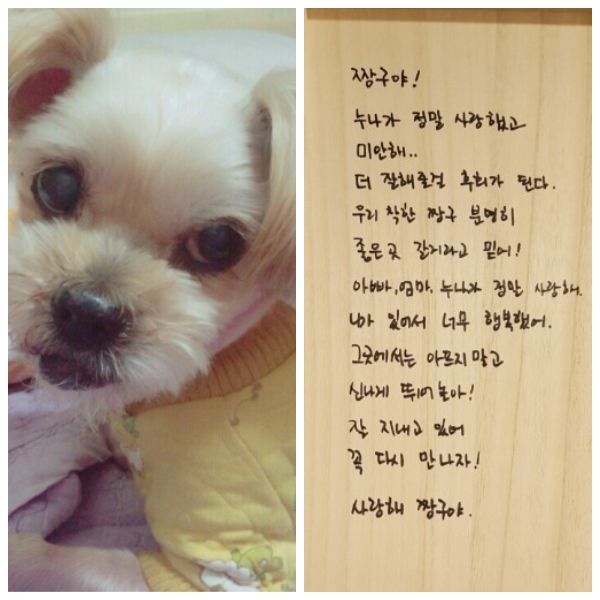 짱구야!
누나가 정말 사랑했고
미안해..
더 잘해줄걸 후회가 된다.
우리 착한 짱구 분명히
좋은곳 갈거라고 믿어!
아빠, 엄마, 누나가 정말 사랑해.
너가 있어서 너무 행복했어.
그곳에서는 아프지말고
신나게 뛰어놀아!
잘 지내고 있어
꼭 다시 만나자!
사랑해 짱구야.